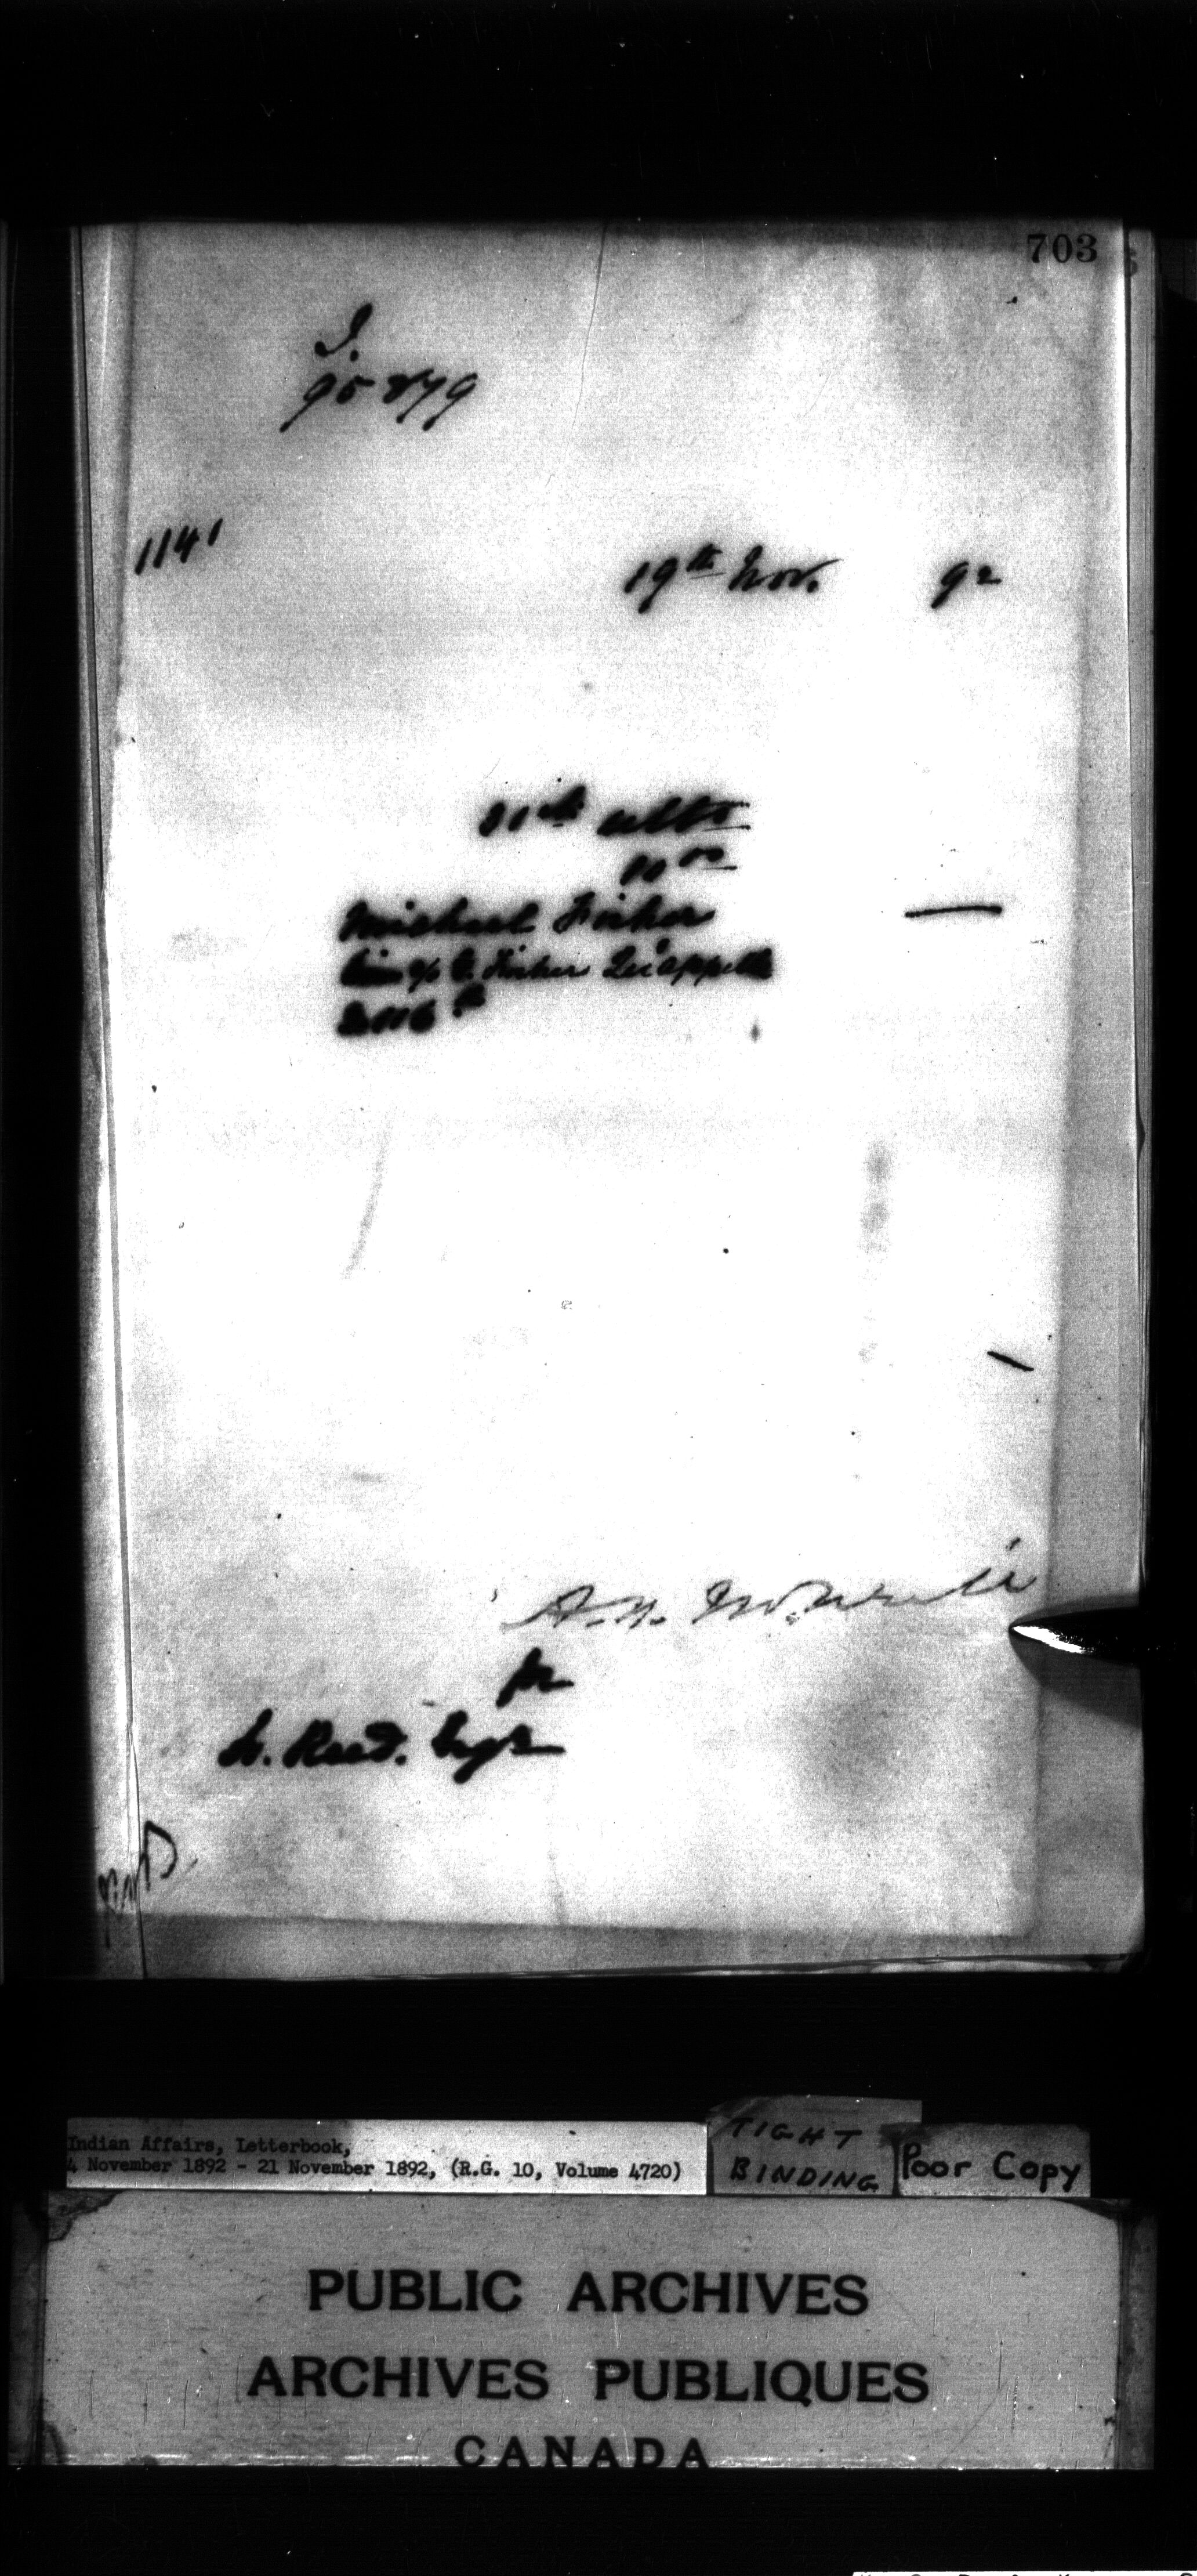 703
I.
95879
1141
19th Nov. 92
31st ulto
10 00
Michael Fisher
c/o Fisher Qu'appelle
for
H. Reed. Esq
Indian Affairs, Letterbook,
4 November 1892 - 21 November 1892, (R.G. 10, Volume 4720)
TIGHT
BINDING
Poor Copy
PUBLIC ARCHIVES
ARCHIVES PUBLIQUES
CANADA